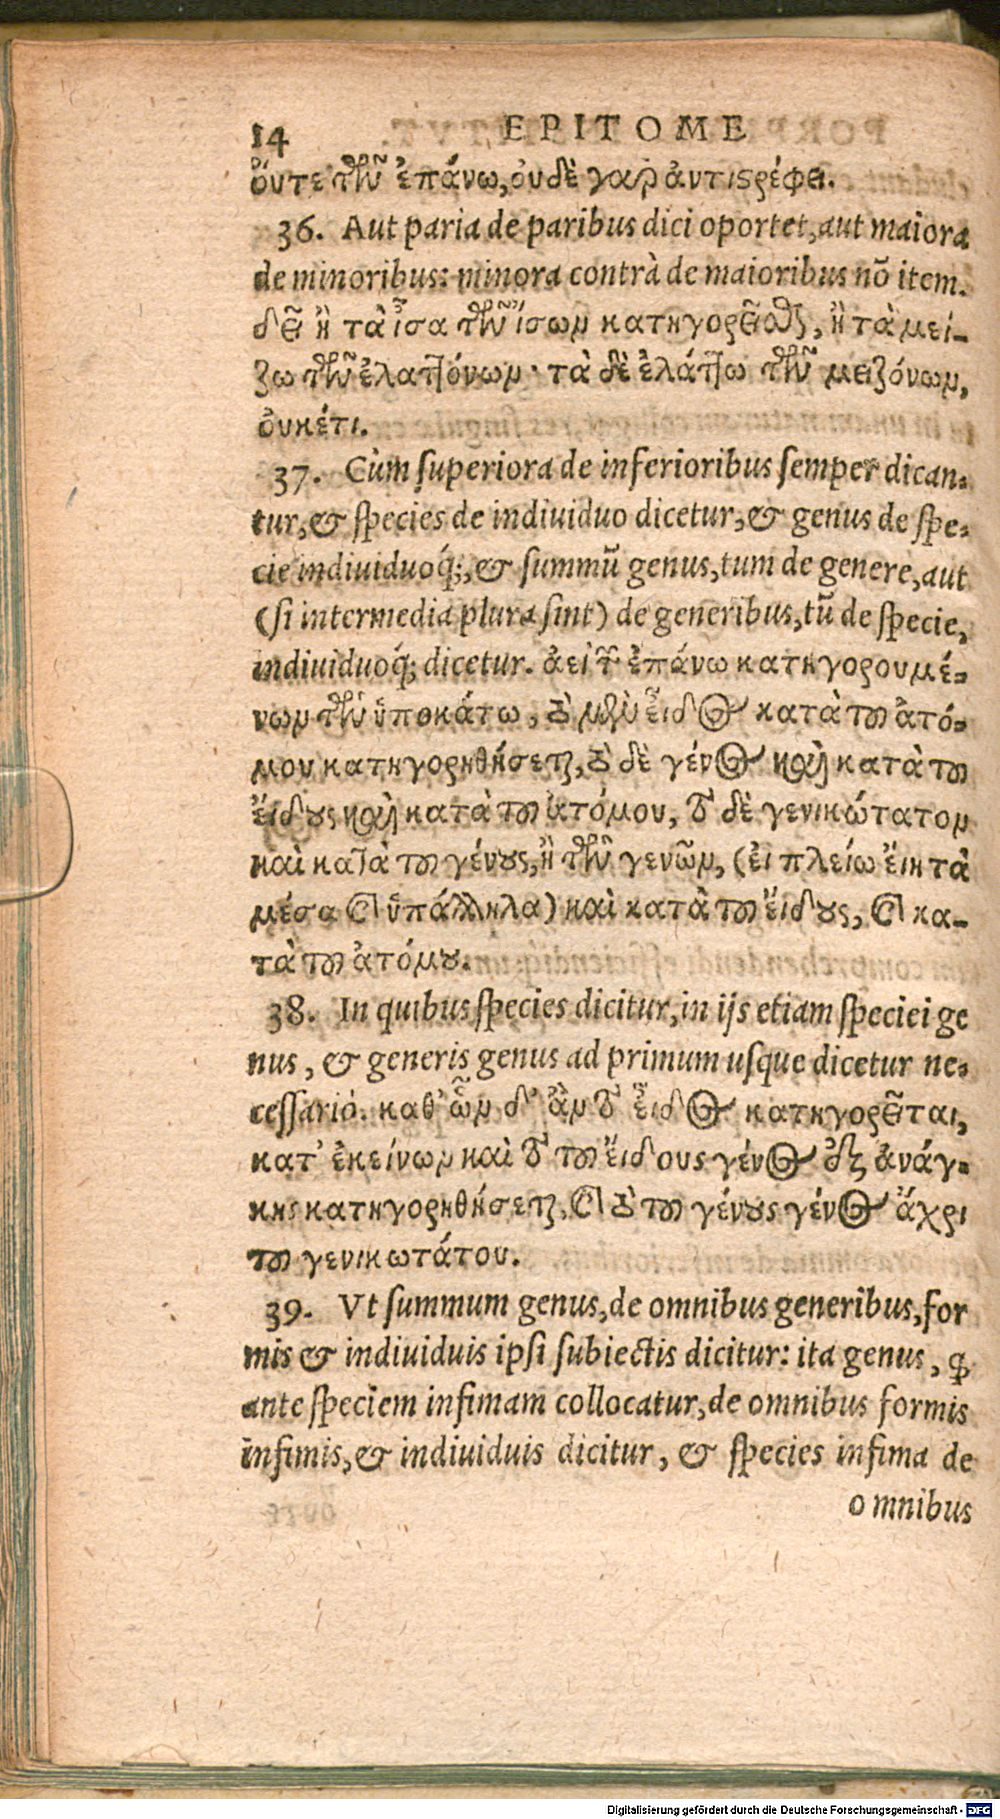 14 EPITOME
ὄυτε τῶν ἐπάνω, ὀυδὲ γαρ ἀντιστρέφει.
36. Aut paria de paribus dici oportet, aut maiora
de minoribus: minora contrà de maioribus nō item.
δεῖ ἢ τὰ ἶσα τῶν ἴσων κατηγορεῖσθαι, ἢ τὰ μεί-
ζω τῶν ἐλαττόνων· τὰ δὲ ἐλάττω τῶν μειζόνων,
ὀυκέτι.
37. Cùm superiora de inferioribus semper dican-
tur, & species de indiuiduo dicetur, & genus de spe-
cie indiuiduoq́;, & summū genus, tum de genere, aut
(si intermedia plura sint) de generibus, tū de specie,
indiuiduoq́; dicetur. ἀεὶ τῶν ἐπάνω κατηγορουμέ-
νων τῶν ὑποκάτω, τὸ μὲν εἶδος κατὰ τοῦ ἀτό-
μου κατηγορηθήσεται, τὸ δὲ γένος καὶ κατὰ τοῦ
ἔιδους καὶ κατὰ τοῦ ἀτόμου, τὸ δὲ γενικώτατον
καὶ κατὰ τοῦ γένους, ἢ τῶν γενῶν, (ἐι πλείω ἔιη τὰ
μέσα καὶ ὑπάλληλα) καὶ κατὰ τοῦ ἔιδους, καὶ κα-
τὰ τοῦ ἀτόμου.
38. In quibus species dicitur, in ijs etiam speciei ge
nus, & generis genus ad primum usque dicetur ne-
cessariò. καθ' ὧν δ' ἂν τὸ εἶδος κατηγορεῖται,
κατ' ἐκείνων καὶ τὸ τοῦ ἔιδους γένος ἐξ ἀνάγ-
κης κατηγορηθήσεται, καὶ τὸ τοῦ γένους γένος ἄχρι
τοῦ γενικωτάτου.
39. Vt summum genus, de omnibus generibus, for
mis & indiuiduis ipsi subiectis dicitur: ita genus, ꝙ
ante speciem infimam collocatur, de omnibus formis
infimis, & indiuiduis dicitur, & species infima de
omnibus
Digitalisierung gefördert durch die Deutsche Forschungsgemeinschaft - DFG